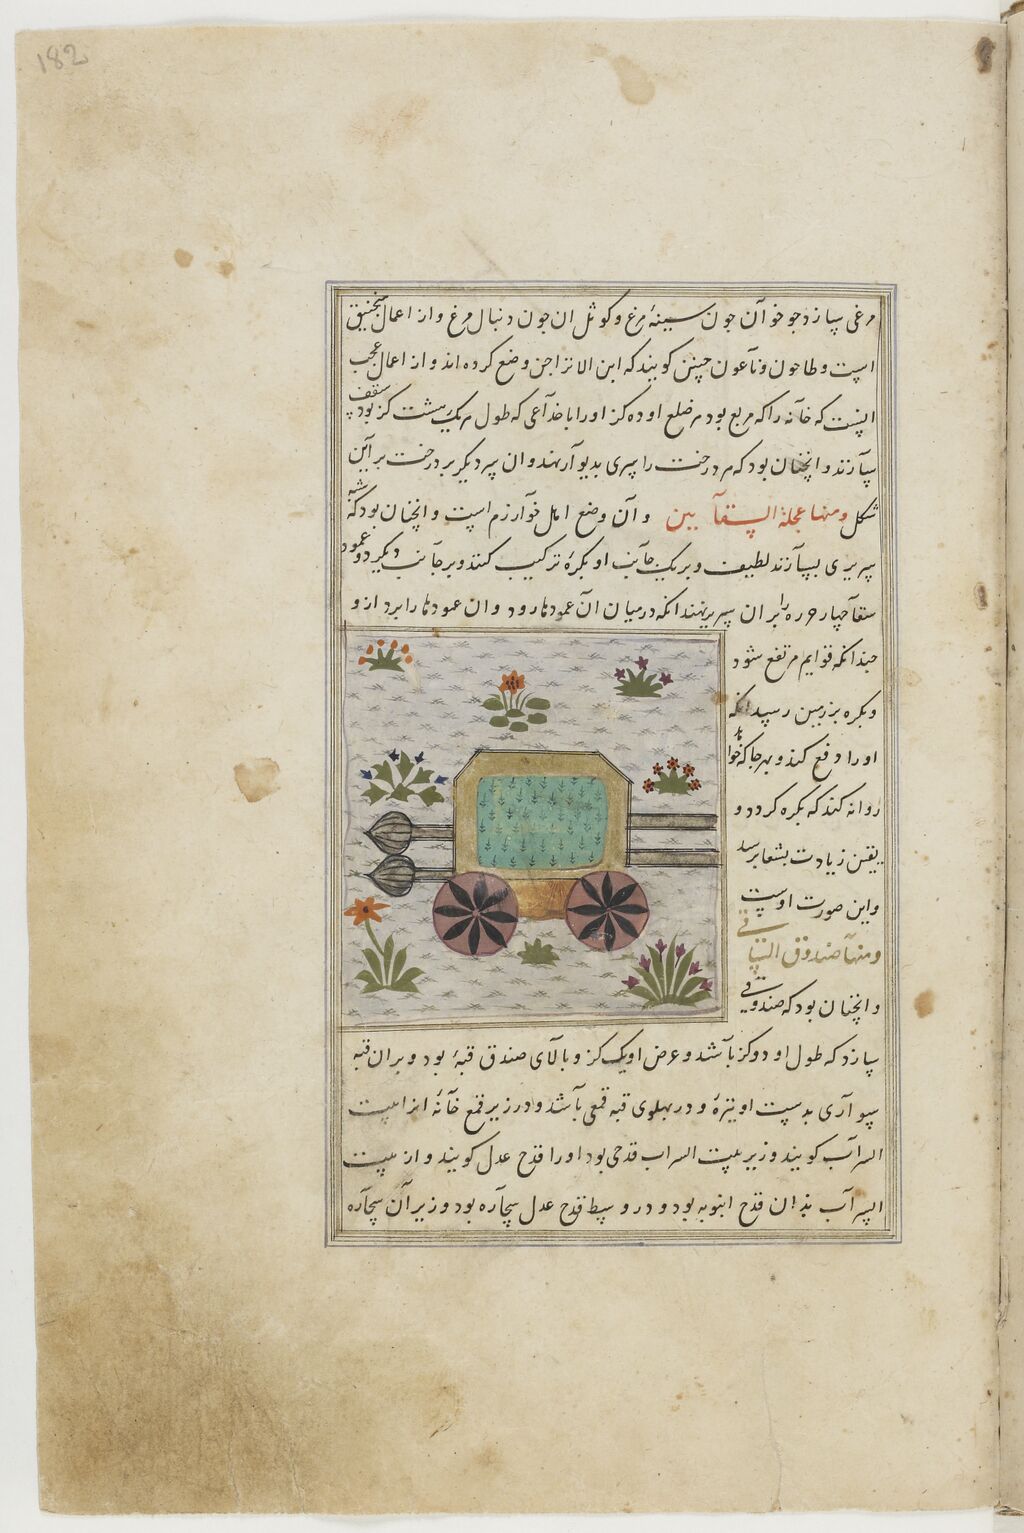 182
مرغی سازد جو خو آن جون سینهٔ مرغ و کوثل ان جون دنبال مرغ و از اعمال منجنیق
است و طاحون و ناعون جنین کویند که این الات را جن وضع کرده اند و از اعمال عجب
انست که خانه را که مربع بود هر ضلع او ده کز اورا با خذاعی که طول هر یک هشت کز بود سقف
سازند و انجنان بود که هر درخت را سری بدیوار نهند و ان سر دیکر بر درخت بر این
شکل ومنها عجلة السقآ بین و آن وضع اهل خوارزم است و انجنان بود که
سریری بسازند لطیف و بر یک جانب او بکرهٔ ترکیب کنند و بر جانب دیکر دو عمود
سقا جهار جره را بر ان سریر نهند انکه در میان آن عمودها رود و ان عمودها را بردارد و
جندانکه قوایم مرتفع شود
و بکره بزمین رسد انکه
او را دفع کند و بهر جا که خواهد
روانه کند که بکره کردد و
یقین زیادت بسقا برسد
و این صورت اوست
ومنها صندوق الساقی
و انجنان بود که صندوقی
سازد که طول او دو کز باشد و عرض او یک کز و بالای صندق قبهٔ بود و بران قبه
سواری بدست او نیزهٔ و در بهلوی قبه قمعی باشد و در زیر قمع خانهٔ انرا بیت
السراب کویند و زیر بیت السراب قدحی بود اورا قدح عدل کویند و از بیت
السراب بدان قدح انبوبه بود و در وسط قدح عدل سحاره بود و زیر آن سحاره